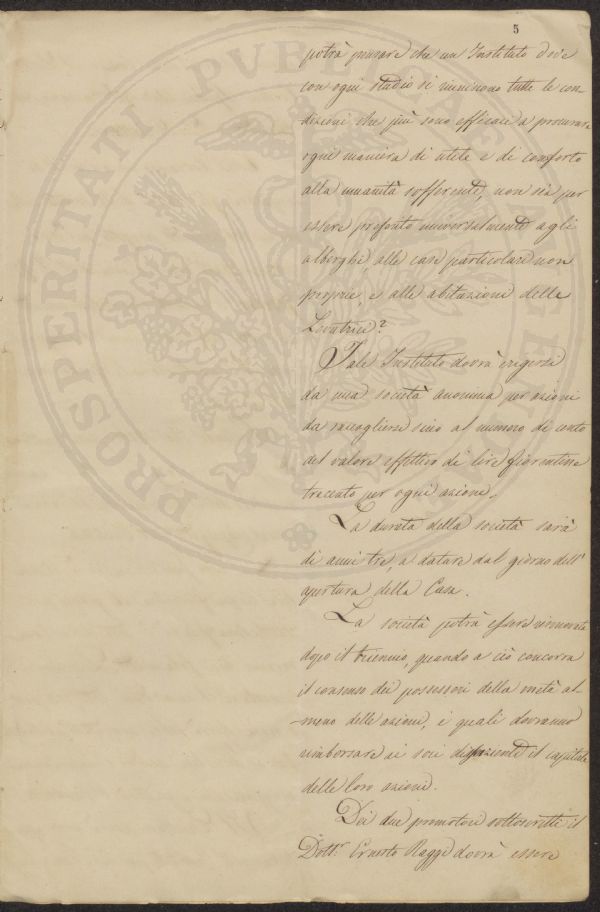 5
potrà pensare che un Instituto dove
con ogni studio si riunisono tutte le con-
dizioni che più sono efficaci a procurare
ogni maniera di utile e di conforto
alla umanità sofferente, non sia per
essere preferito universalmente agli
alberghi, alle case particolari non
proprie, e alle abitazioni delle
Levatrici?
Tale Instituto dovrà erigersi
da una società anonima per azioni
da raccogliersi sino al numero di cento
del valore effettivo di lire fiorentine
trecento per ogni azione.
La durata della società sarà
di anni tre, a datare dal giorno dell'
apertura della Casa.
La società potrà essere rinnovata
dopo il triennio, quando a ciò concorra
il consenso dei possessori della metà al-
meno delle azioni, i quali dovranno
rimborsare ai soci dissenzienti il capitale
delle loro azioni.
Dei due promotori sottoscritti il
Dott.r Ernesto Raggi dovrà essere
PROSPERITATI PUBLICAE AUGENDAE